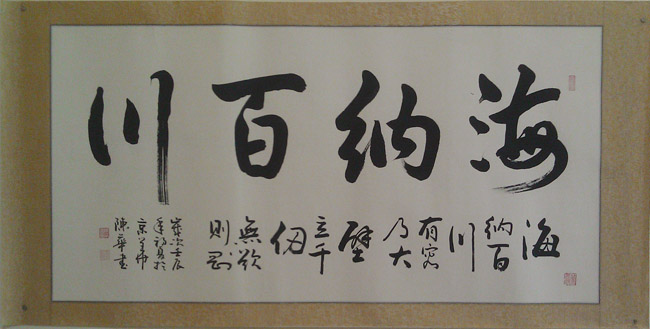 海納百川
海
納百
川
有容
乃大
壁
立千
仞
無欲
則剛
歲次壬辰
年初夏於
京
書